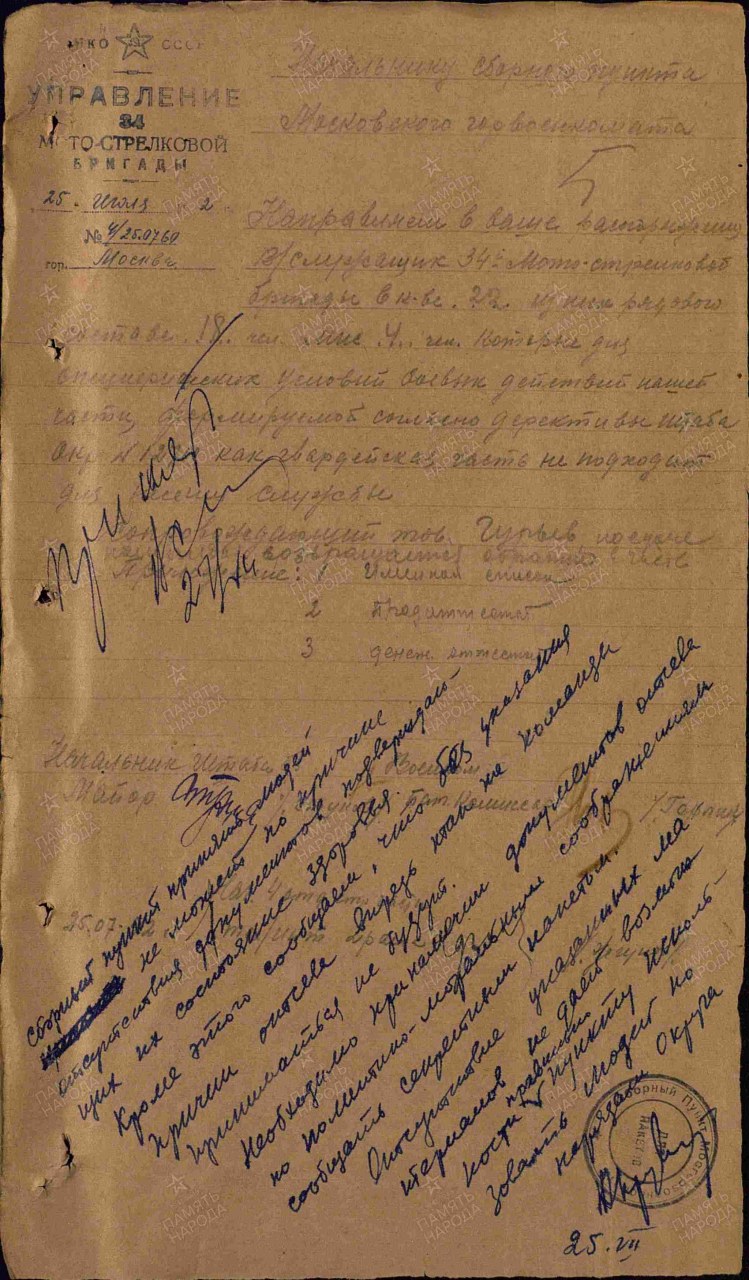 НКО СССР
УПРАВЛЕНИЕ
34
МОТО-СТРЕЛКОВОЙ
БРИГАДЫ
25. Июля 2
№ 4/25.0769
гор. Москва
Начальнику сборного пункта
Московского горвоенкомата
Направляем в ваше распоряжение
34й Мото-стрелковой
бригады в к-ве. 22. из них рядового
состава. 18. чел. 4. чел. Которые для
специфических условий боевых действий нашей
части, формируемой согласно дерективы штаба
Окр № как гвардейская часть не подходит
для несения службы
Сопровождающий тов. Гурьев после
возвращается обратно в часть
Приложение: 1 Именной список
2 Продаттестат
3 денеж. аттестат
Начальник Штаба Военком
Майор Бат. Комиссар
25.07.
принял
27/VII
Сборный пункт принять людей
не может по причине
отсутствия документов подтверждаю-
щих их состояние здоровья.
Кроме этого сообщаем, что без указания
причин отсева впредь такие же команды
приниматься не будут.
Необходимо при наличии документов отсева
по политико-моральным соображениям
сообщать секретным пакетом.
Отсутствие указанных ма
териалов не дает возмож
ности пункту правильно исполь-
зовать людей по
нарядам Округа
Сборный Пункт
ДЛЯ
ПАКЕТОВ
25. VII
ПАМЯТЬ
НАРОДА